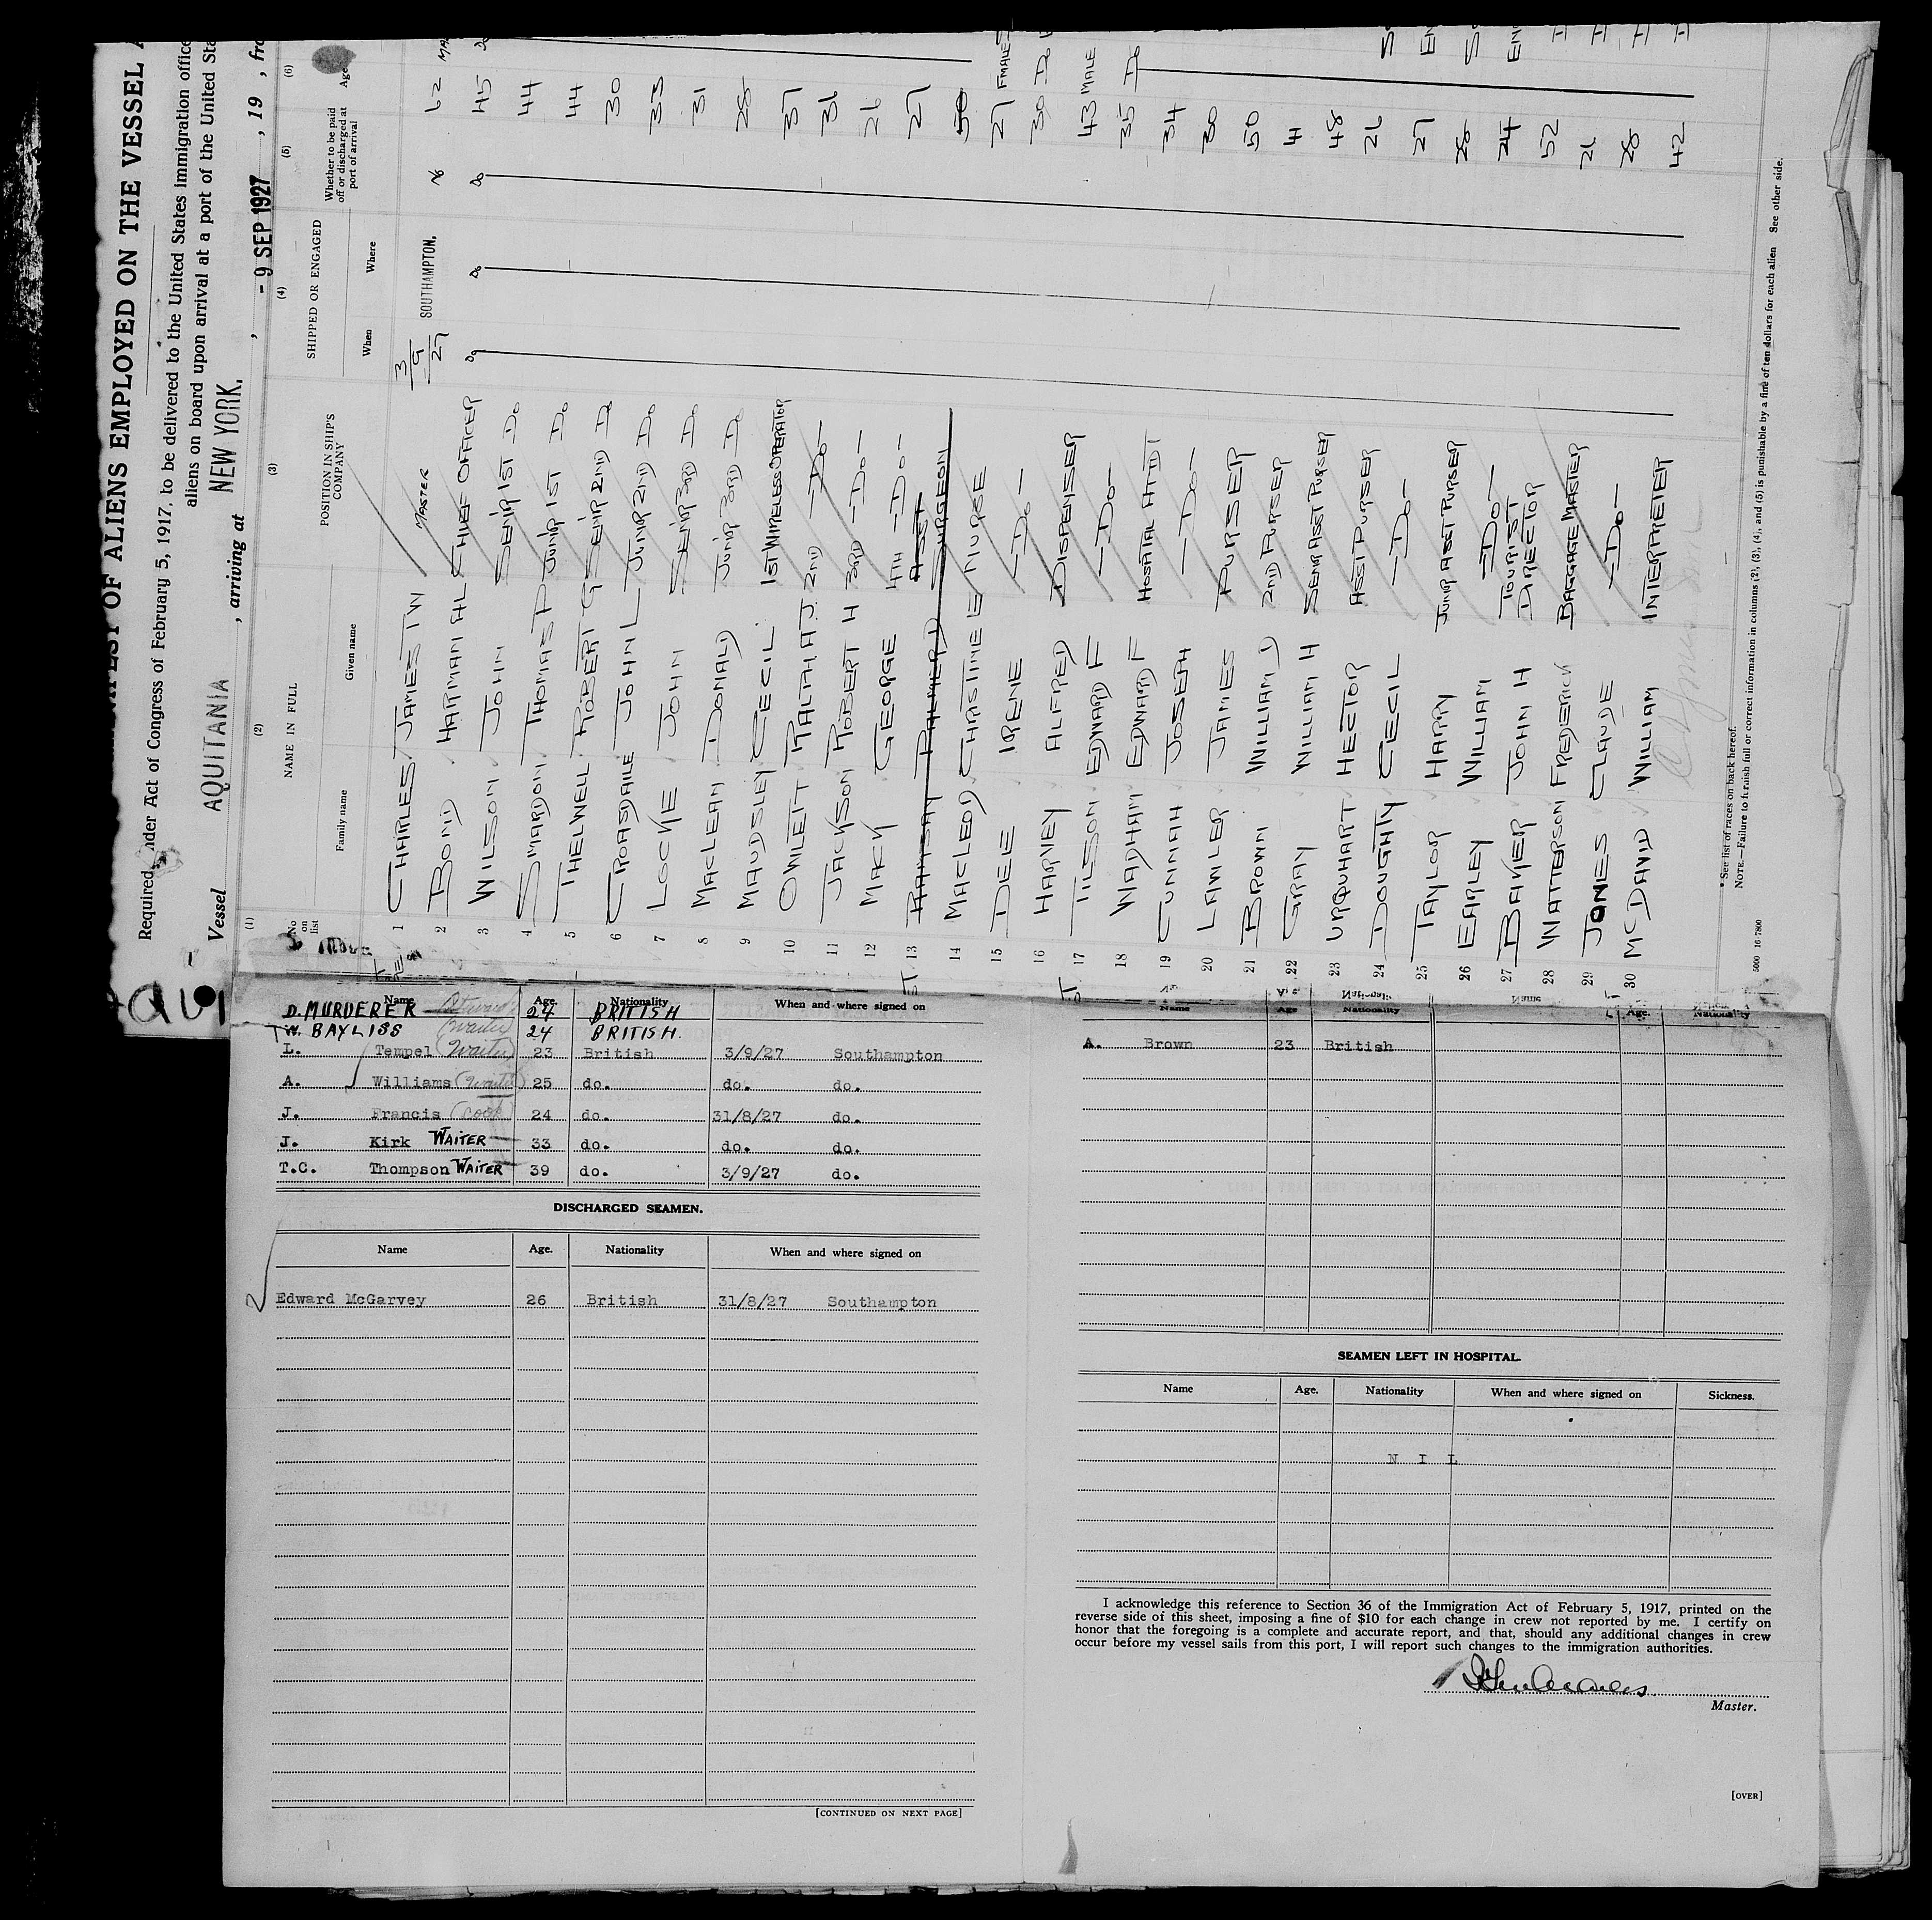 MANIFEST OF ALIENS EMPLOYED ON THE VESSEL
Required under Act of Congress of February 5, 1917, to be delivered to the United States immigration office
aliens on board upon arrival at a port of the United Sta
Vessel AQUITANIA, arriving at NEW YORK, - 9 SEP 1927, 19 , fro
(1) (2) (3) (4) (5) (6)
No on list
NAME IN FULL
Family name Given name
POSITION IN SHIP'S COMPANY
SHIPPED OR ENGAGED
When Where
Whether to be paid off or discharged at port of arrival
Age
1 CHARLES JAMES T W MASTER 3/9/27 SOUTHAMPTON. No 62
2 BOND HARMAN AL CHIEF OFFICER Do Do Do 45
3 WILSON JOHN SENIR 1ST Do 44
4 SMARDON THOMAS P JUNIR 1ST Do 44
5 THELWELL ROBERT G SENIR 2ND Do 30
6 CROASDAILE JOHN L JUNIR 2ND Do 33
7 LOCKE JOHN SENIR 3RD Do 31
8 MACLEAN DONALD JUNIR 3RD Do 28
9 MAUDSLEY CECIL 1ST WIRELESS OPERATOR 37
10 OWLETT RALPH A J. 2ND -Do- 36
11 JACKSON ROBERT H 3RD -Do- 26
12 MACK GEORGE 4TH -Do- 27
13 RAMSAY PALMER D ASST SURGEON 30
14 MACLEOD CHRISTINE E NURSE 27 FMALE
15 DEE IRENE -Do- 30 Do
16 HARVEY ALFRED DISPENSER 43 MALE
17 TILSON EDWARD F -Do- 35 Do
18 WADHAM EDWARD F HOSPITAL ATTDT 34
19 CUNNAH JOSEPH -Do- 30
20 LAWLER JAMES PURSER 50
21 BROWN WILLIAM D 2ND PURSER 41
22 GRAY WILLIAM H SENR ASST PURSER 48
23 URQUHART HECTOR ASST PURSER 26
24 DOUGHTY CECIL -Do- 27
25 TAYLOR HARRY JUNR ASST PURSER 28
26 EARLEY WILLIAM -Do- 24
27 BAKER JOHN H TOURIST DIRECTOR 52
28 WATTERSON FREDERICK BAGGAGE MASTER 26
29 JONES CLAUDE -Do- 28
30 MCDAVID WILLIAM INTERPRETER 42
* See list of races on back hereof.
NOTE.—Failure to furnish full or correct information in columns (2), (3), (4), and (5) is punishable by a fine of ten dollars for each alien See other side.
5000 16-7800
Name Age. Nationality When and where signed on
D. MURDERER 24 BRITISH
W. BAYLISS (Waiter) 24 BRITISH.
L. Tempel (Waiter) 23 British 3/9/27 Southampton
A. Williams (Waiter) 25 do. do. do.
J. Francis (Cook) 24 do. 31/8/27 do.
J. Kirk WAITER 33 do. do. do.
T.C. Thompson WAITER 39 do. 3/9/27 do.
DISCHARGED SEAMEN.
Name Age. Nationality When and where signed on
Edward McGarvey 26 British 31/8/27 Southampton
[CONTINUED ON NEXT PAGE]
Name Age Nationality Name Age. Nationality
A. Brown 23 British
SEAMEN LEFT IN HOSPITAL
Name Age. Nationality When and where signed on Sickness.
N I L
I acknowledge this reference to Section 36 of the Immigration Act of February 5, 1917, printed on the
reverse side of this sheet, imposing a fine of $10 for each change in crew not reported by me. I certify on
honor that the foregoing is a complete and accurate report, and that, should any additional changes in crew
occur before my vessel sails from this port, I will report such changes to the immigration authorities.
Master.
[OVER]